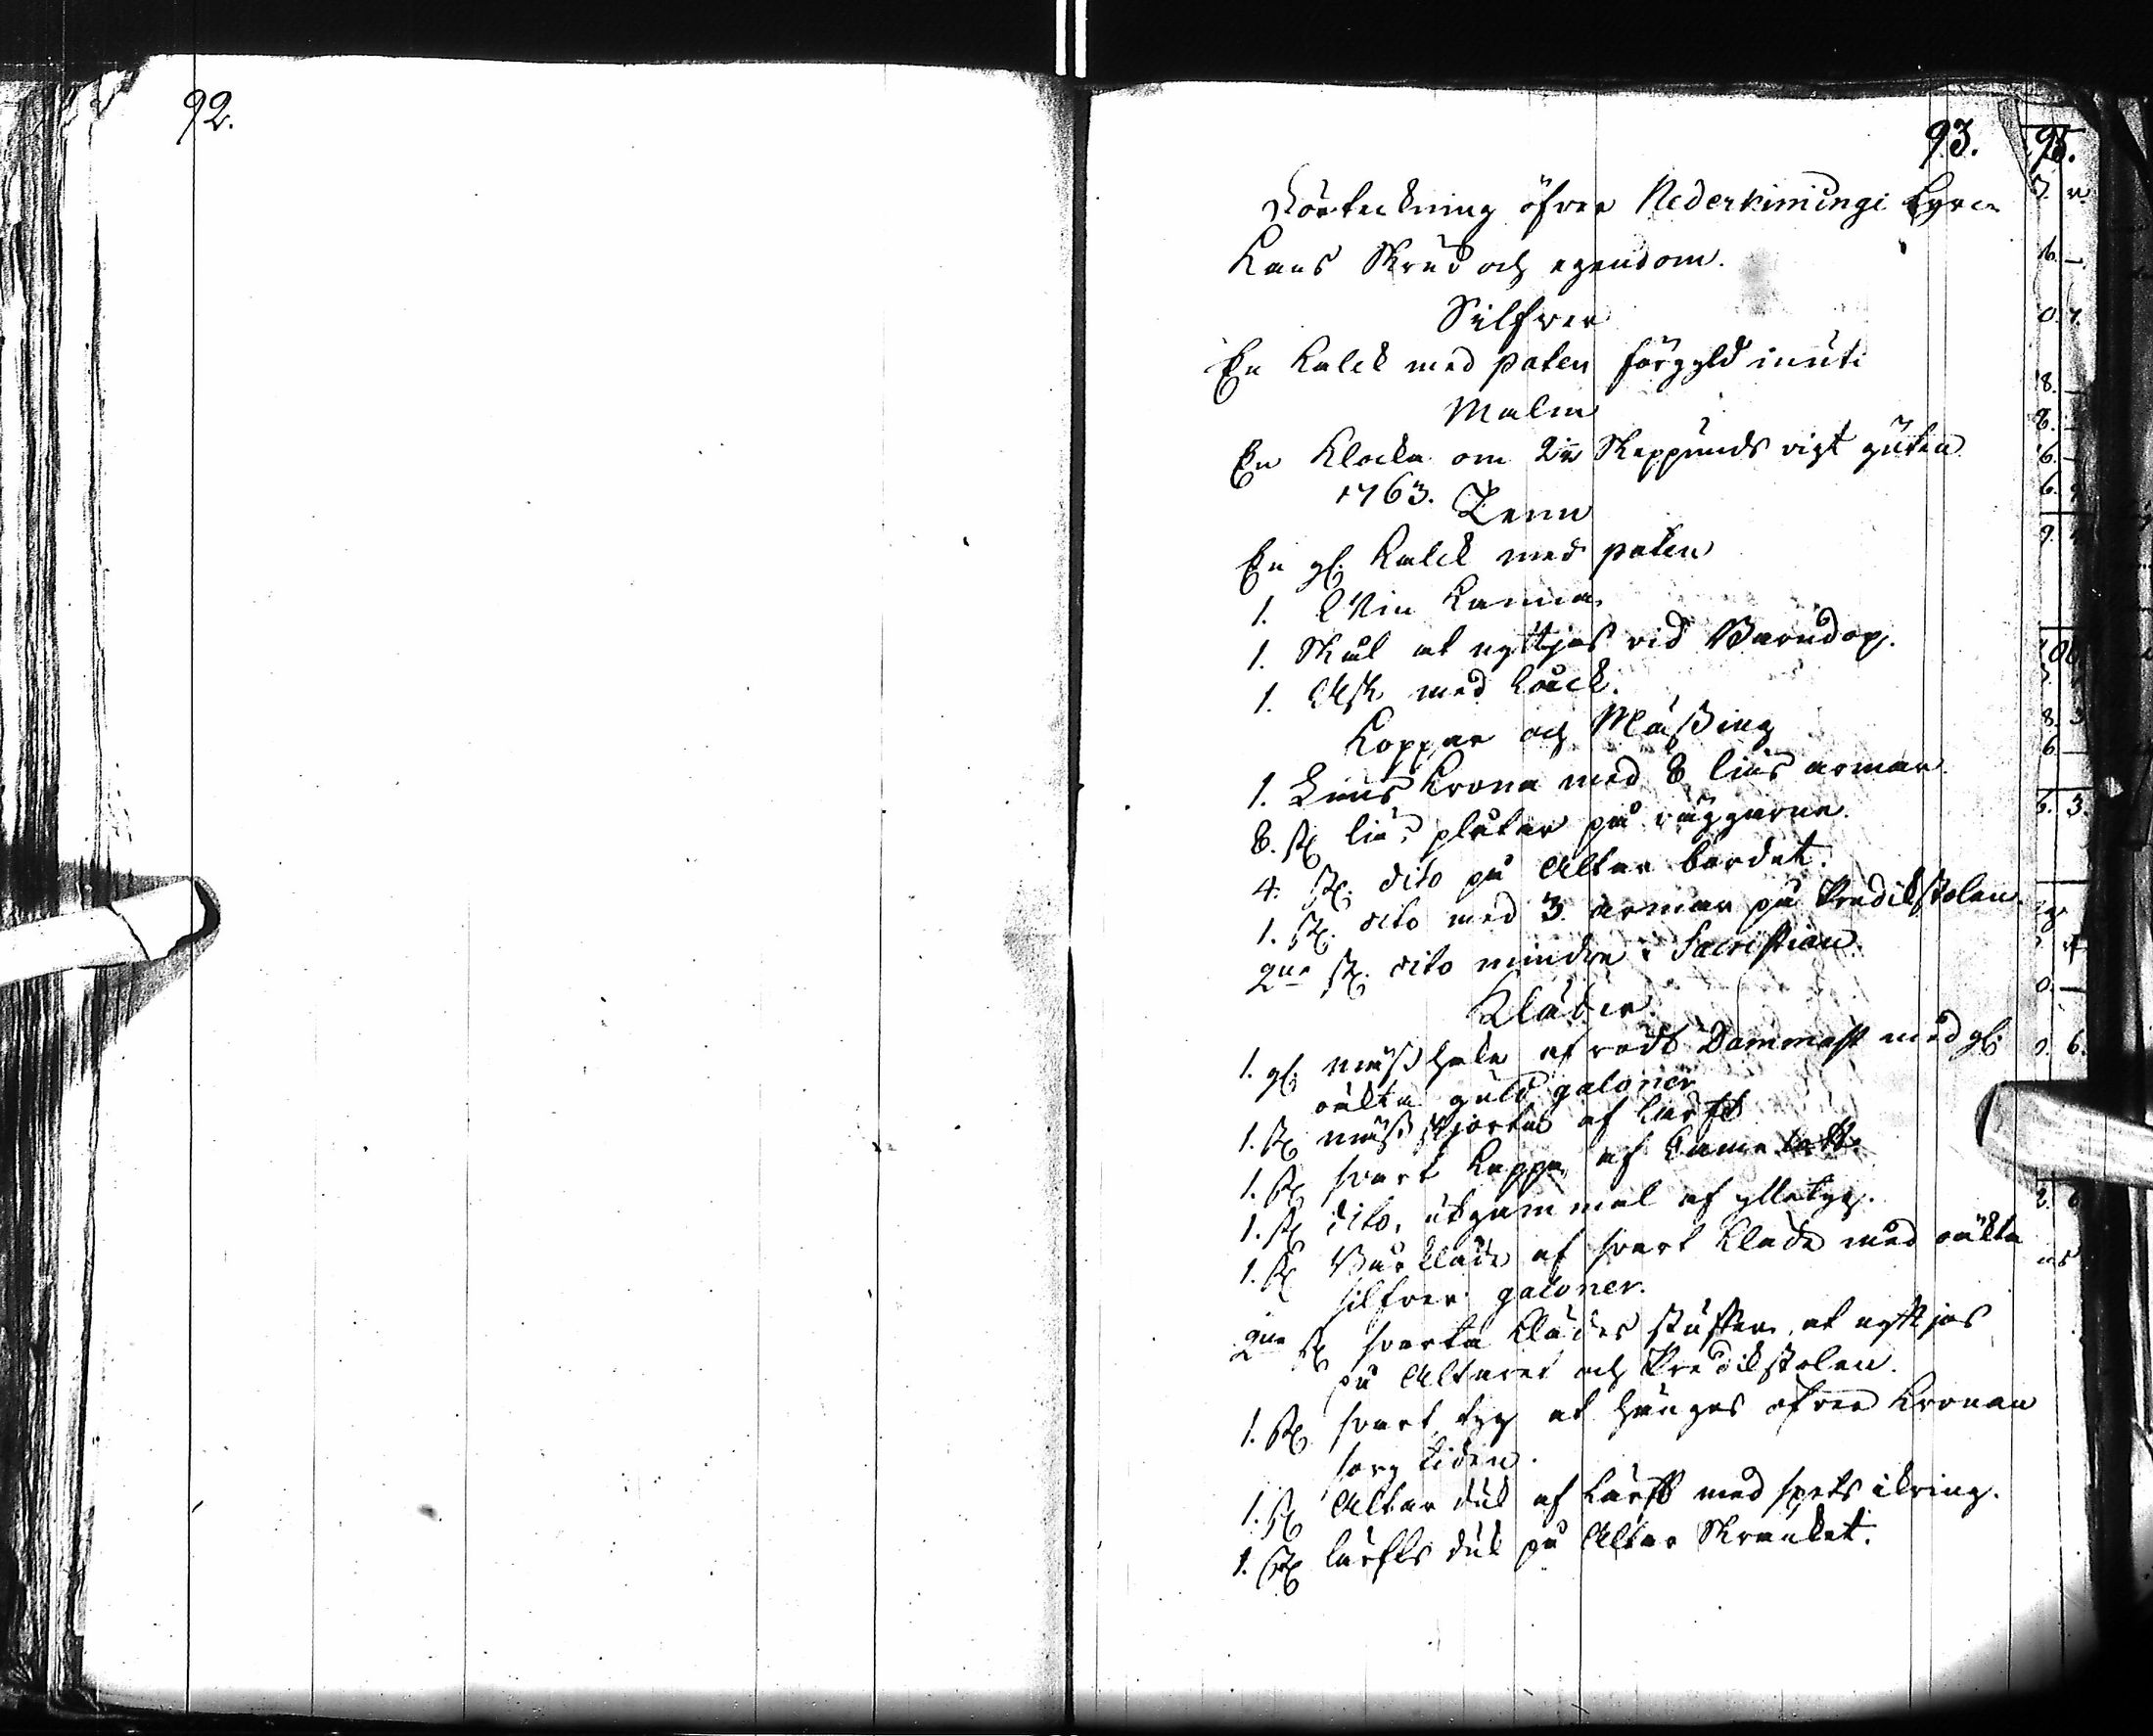 92.
93.
Förteckning öfver Nederkimingi Kyrc-
kans Skrud och egendom.
Silfver
En Kalck med paten förgyld inuti
Malm
En Klocka om 2ne Skeppunds vigt guten
1763.
Tenn
En gl. Kalck med paten
1. Vin Kanna
1. Skål at nyttjas vid Barndop.
1. Ask med Låck.
Koppar och Mässing
1. Lius Krona med 8 lius armar
8. st lius plåtar på väggarne.
4. st. dito på Altar bordet.
1. st. dito med 3. armar på Predikstolen.
2ne st. dito mindre i Sacristian.
Kläder.
1. gl. mässhake af rödt Dammast med gl.
oäkta guld galoner
1. st mässskjorta af lärft
1. st svart kappa af Kamelott.
1. st dito, utgammal af ylletyg.
1. st Bårkläde af svart kläde med oäkta
silfver galoner.
2ne st svarta klädes stufvar at nyttjas
på Altaret och Predikstolen.
1. st svart tyg at hänges öfver Kronan
sorgtiden.
1. st Altar duk af Lärft med spets ikring.
1. st lärfts duk på Altar Skranket.